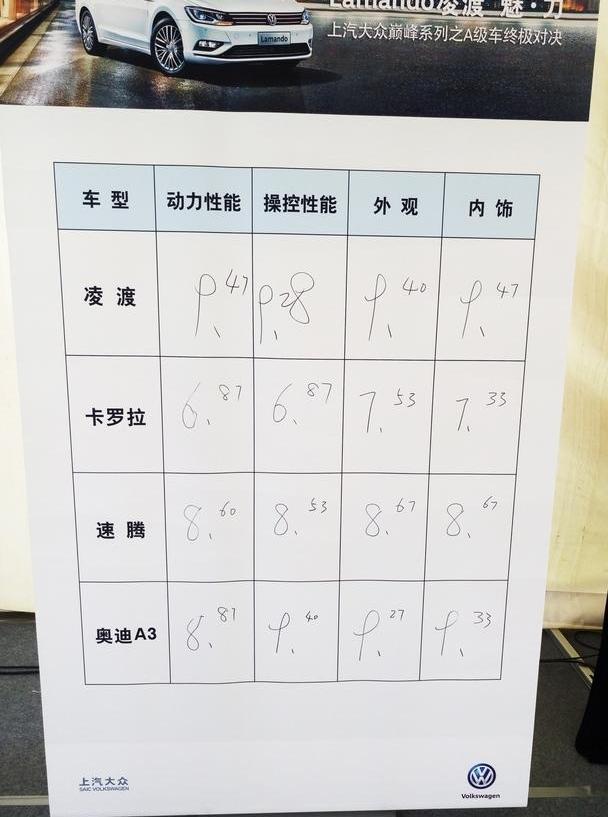 Lamando
Lamando凌渡 魅·力
上汽大众巅峰系列之A级车终极对决
车 型 动力性能 操控性能 外 观 内 饰
凌 渡 9.47 9.28 9.40 9.47
卡罗拉 6.87 6.87 7.53 7.33
速 腾 8.60 8.53 8.67 8.67
奥迪A3 8.87 9.40 9.27 9.33
上汽大众
SAIC VOLKSWAGEN
Volkswagen